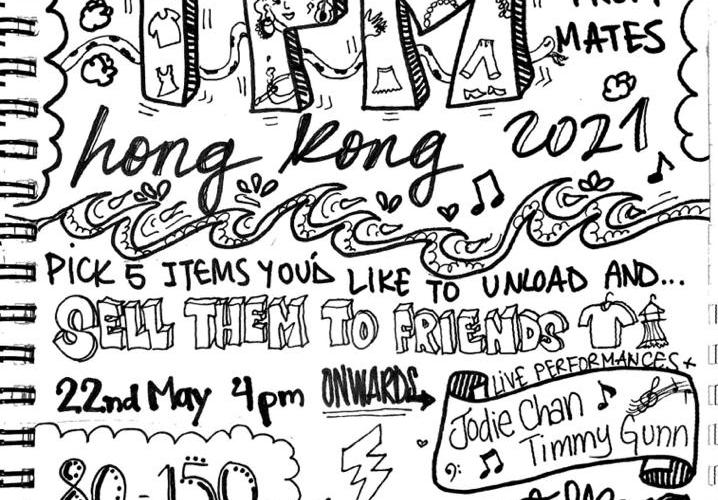 TPM
MATES
hong kong 2021
PICK 5 ITEMS YOU'D LIKE TO UNLOAD AND...
SELL THEM TO FRIENDS
22nd May 4pm ONWARDS
LIVE PERFORMANCES +
Jodie Chan
Timmy Gunn
80-150